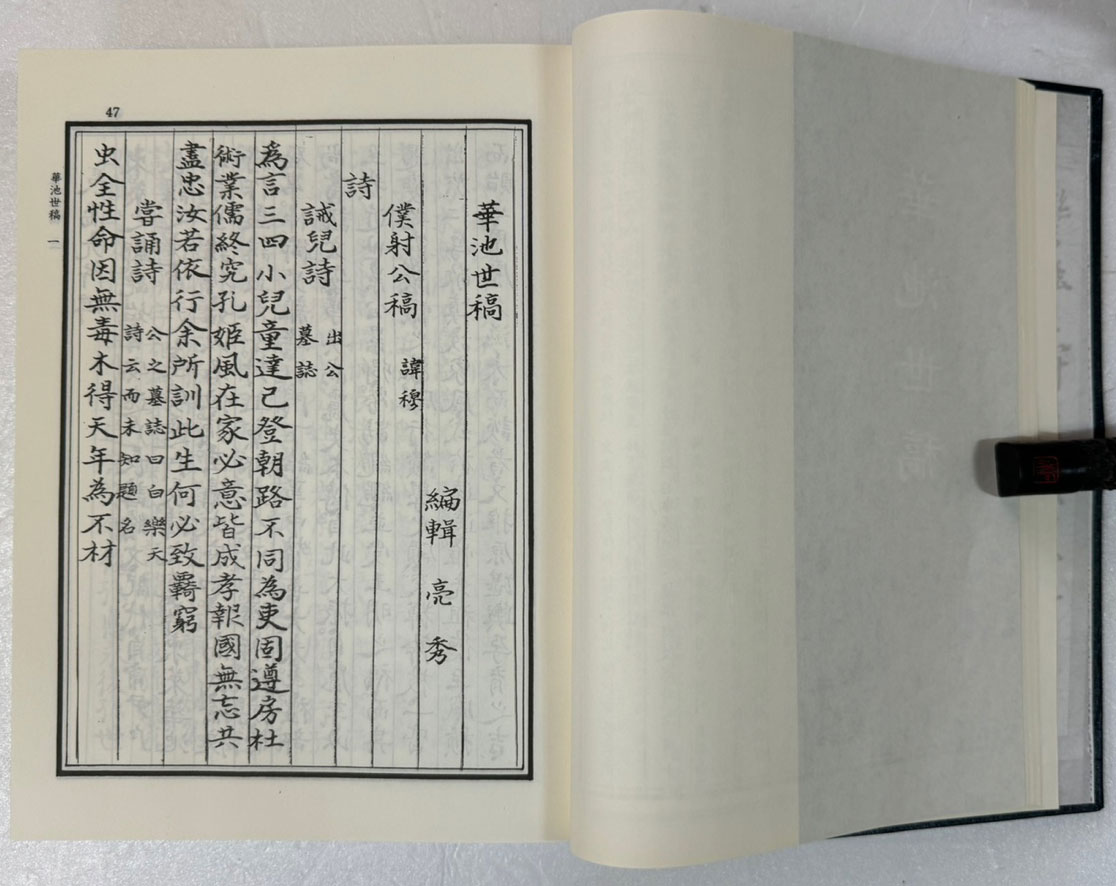 47
華池世稿
編輯 亮 秀
僕射公稿 諱穆
詩
誡兒詩 出公
墓誌
爲言三四小兒童達己登朝路不同為吏固遵房杜
術業儒終究孔姬風在家必意皆成孝報國無忘共
盡忠汝若依行余所訓此生何必致覊窮
甞誦詩 公之墓誌曰白樂天
詩云而未知題名
虫全性命因無毒木得天年為不材
華池世稿 一